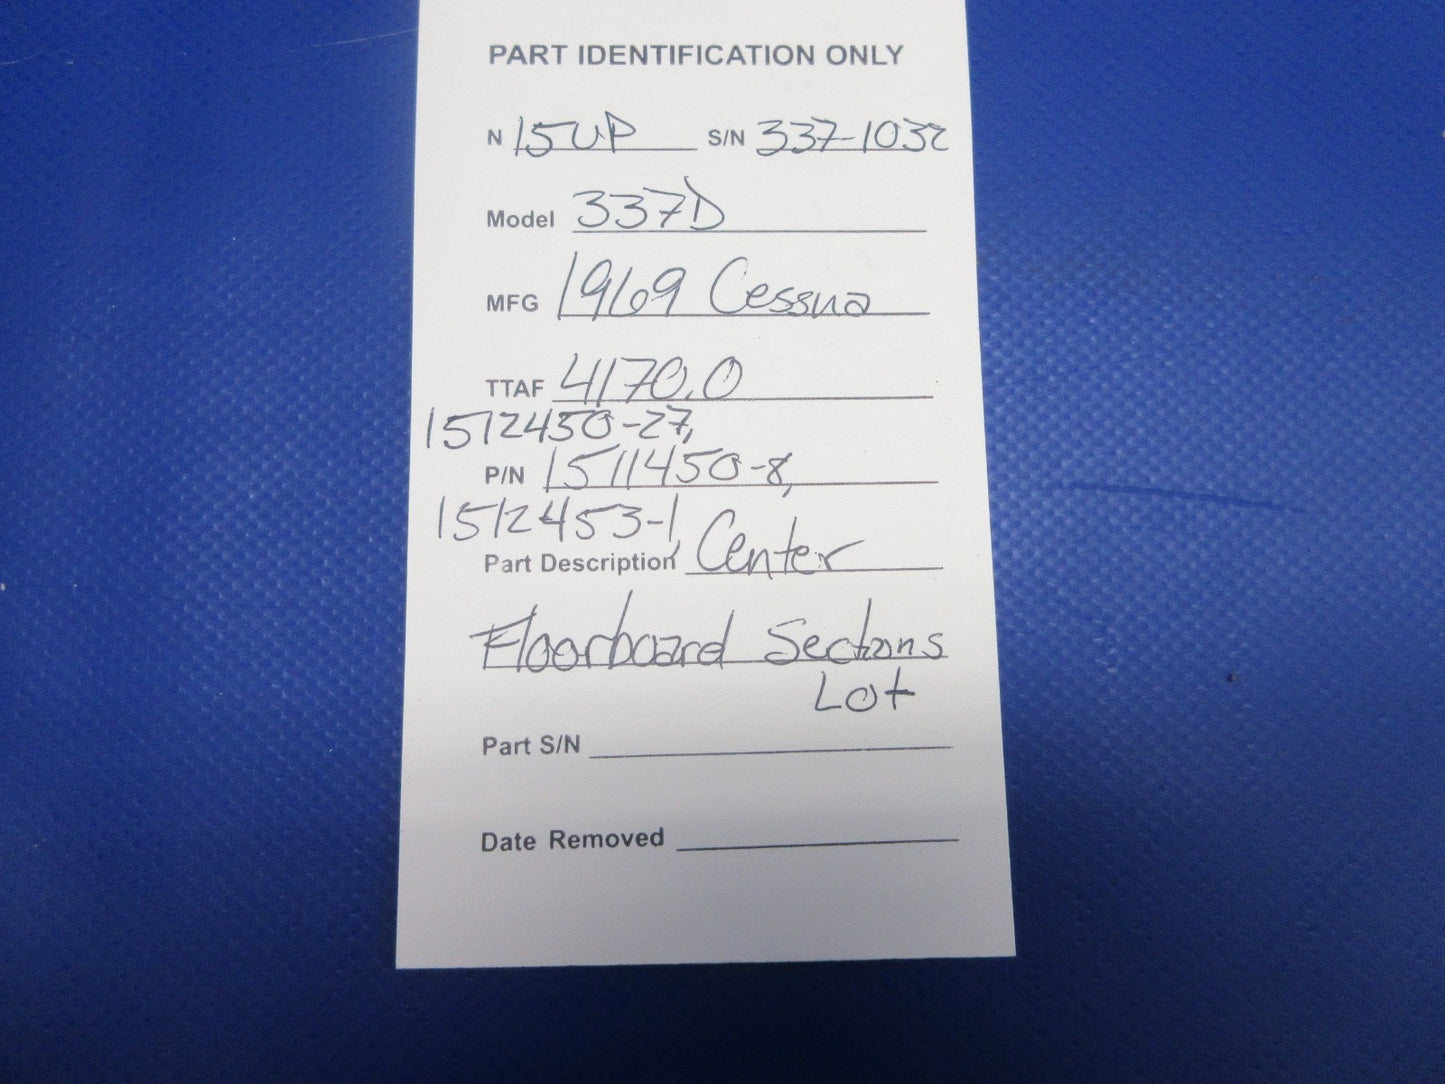 PART IDENTIFICATION ONLY
N 15UP S/N 337-1032
Model 337D
MFG 1969 Cessna
TTAF 4170.0
1512450-27,
P/N 1511450-8,
1512453-1,
Part Description Center
Floorboard Sections
Lot
Part S/N
Date Removed